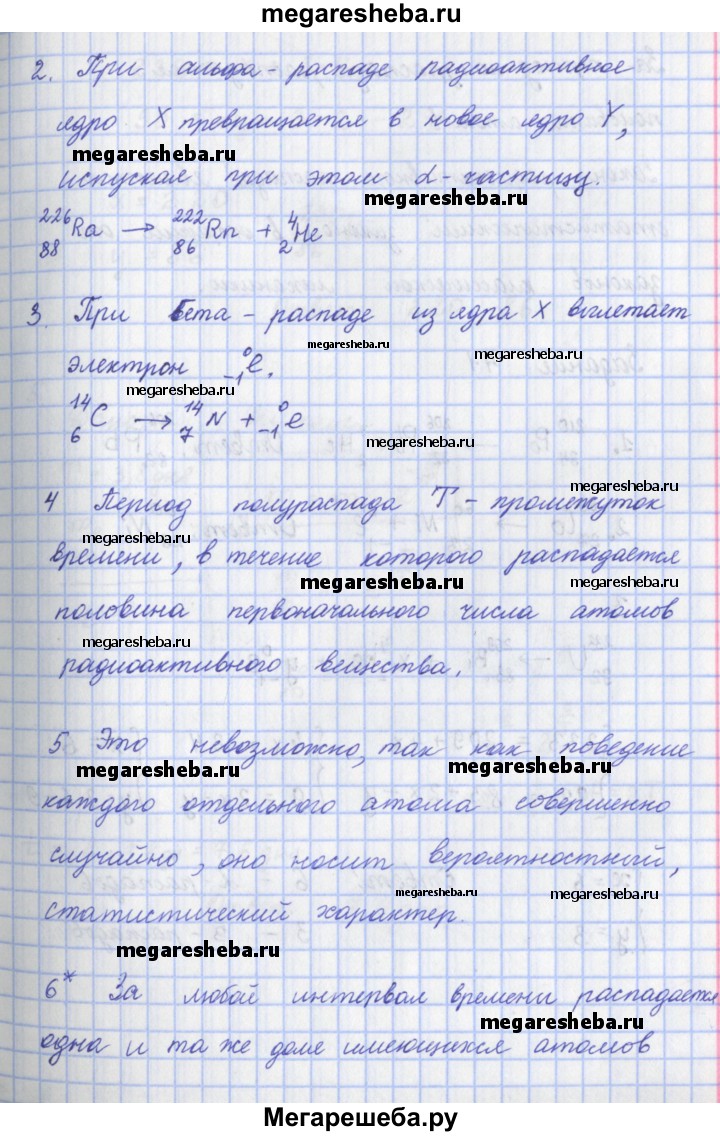 megaresheba.ru
2. При альфа-распаде радиоактивное
ядро X превращается в новое ядро Y,
megaresheba.ru
испуская при этом α-частицу.
megaresheba.ru
²²⁶₈₈Ra → ²²²₈₆Rn + ⁴₂He
3. При бета-распаде из ядра X вылетает
megaresheba.ru
электрон ⁰₋₁e.
megaresheba.ru
megaresheba.ru
¹⁴₆C → ¹⁴₇N + ⁰₋₁e
megaresheba.ru
4 Период полураспада T - промежуток
megaresheba.ru
времени, в течение которого распадается
megaresheba.ru
megaresheba.ru
половина первоначального числа атомов
megaresheba.ru
радиоактивного вещества.
5 Это невозможно, так как поведение
megaresheba.ru
megaresheba.ru
каждого отдельного атома совершенно
случайно, оно носит вероятностный,
megaresheba.ru
megaresheba.ru
статистический характер.
megaresheba.ru
6* За любой интервал времени распадается
megaresheba.ru
одна и та же доля имеющихся атомов
Мегарешеба.ру